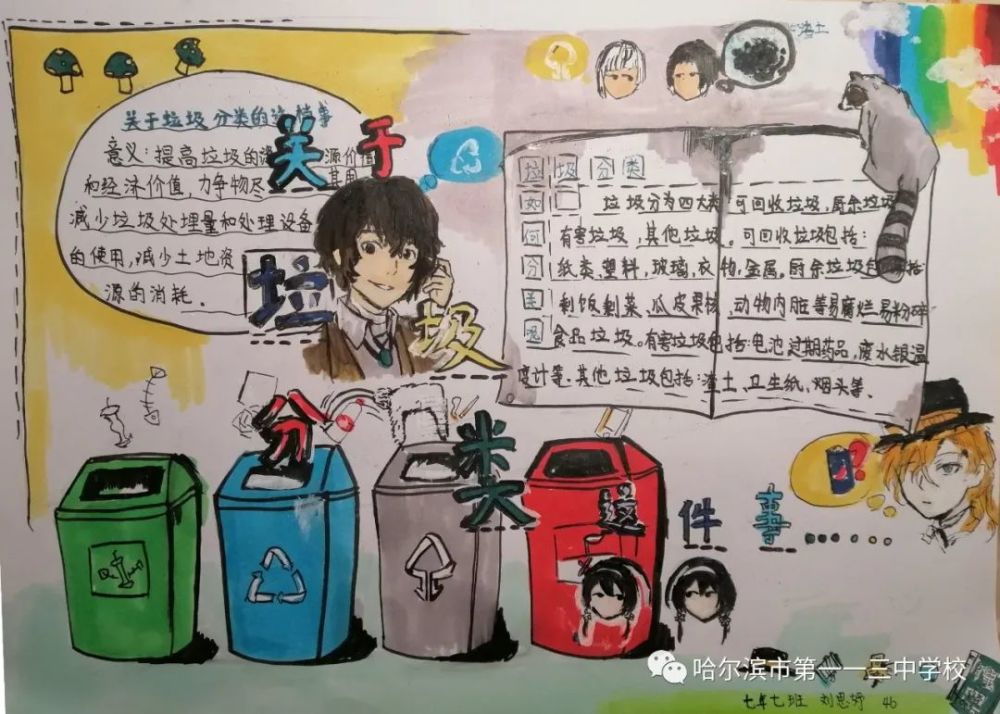 关于垃圾分类的这件事
意义：提高垃圾的
源价值
和经济价值，力争物尽
其用
减少垃圾处理量和处理设备
的使用，减少土地资
源的消耗．
关于
垃圾
分类
这件事……
垃圾分类
如何分类呢
垃圾分为四大类 可回收垃圾，厨余垃圾
有害垃圾，其他垃圾。可回收垃圾包括：
纸类，塑料，玻璃，衣物，金属。厨余垃圾包括
剩饭剩菜、瓜皮果核、动物内脏等易腐烂易粉碎
食品垃圾。有害垃圾包括：电池过期药品，废水银温
度计等．其他垃圾包括：渣土，卫生纸，烟头等．
渣土
?
哈尔滨市第一一三中学校
七年七班 刘思妤 46